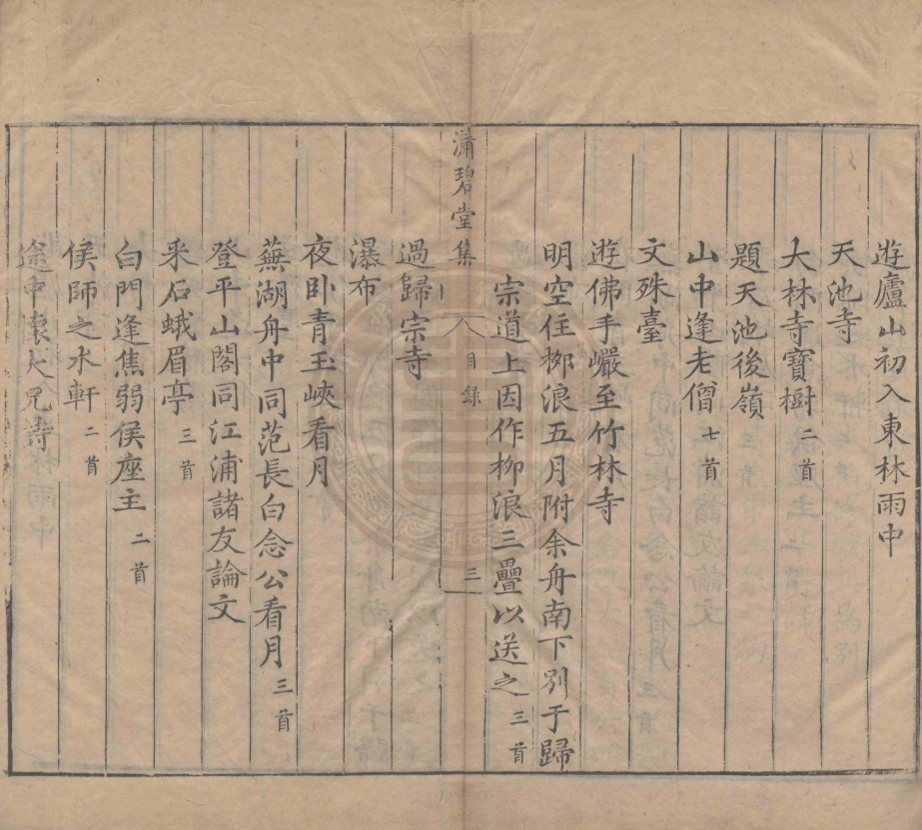 遊廬山初入東林雨中
天池寺
大林寺寶樹二首
題天池後嶺
山中逢老僧七首
文殊臺
遊佛手巖至竹林寺
明空住栁浪五月附余舟南下别于歸
宗道上因作栁浪三疊以送之三首
瀟碧堂集 目録 三
過歸宗寺
瀑布
夜卧青玉峽看月
蕪湖舟中同范長白念公看月三首
登平山閣同江浦諸友論文
采石蛾眉亭三首
白門逢焦弱侯座主二首
侯師之水軒二首
途中懷大兄詩